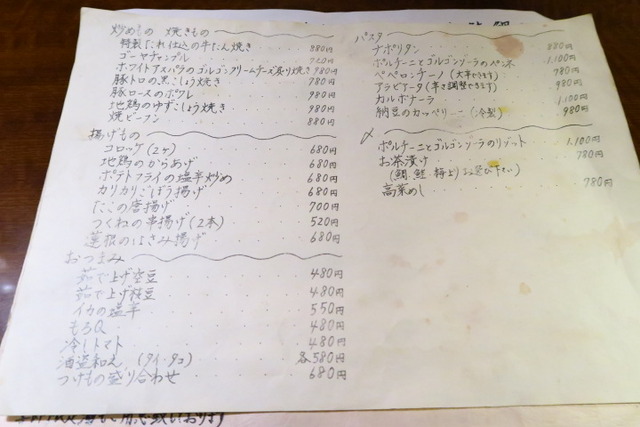 炒めもの 焼きもの
特製だれ仕込の牛たん焼き 880円
ゴーヤチャンプル
ホワイトアスパラのゴルゴンクリームチーズ炙り焼き 980円
豚トロの黒こしょう焼き 780円
豚ロースのポワレ 980円
地鶏のゆずこしょう焼き 980円
焼ビーフン 880円
揚げもの
コロッケ(2ヶ) 680円
地鶏のからあげ 680円
ポテトフライの塩辛炒め 680円
カリカリごぼう揚げ 680円
たこの唐揚げ 700円
つくねの串揚げ(2本) 520円
蓮根のはさみ揚げ 680円
おつまみ
茹で上げ空豆 480円
茹で上げ枝豆 480円
イカの塩辛 550円
もろQ 480円
冷しトマト 480円
酒盗和え (タイ・タコ) 各580円
つけもの盛り合わせ 680円
パスタ
ナポリタン 880円
ポルチーニとゴルゴンゾーラのペンネ 1,100円
ペペロンチーノ(大辛できます) 980円
アラビアータ(辛さ調整できます) 980円
カルボナーラ 1,100円
納豆のカッペリーニ(冷製) 980円
〆
ポルチーニとゴルゴンゾーラのリゾット 1,100円
お茶漬け 780円
(鯛・鮭・梅よりお選び下さい)
高菜めし 780円